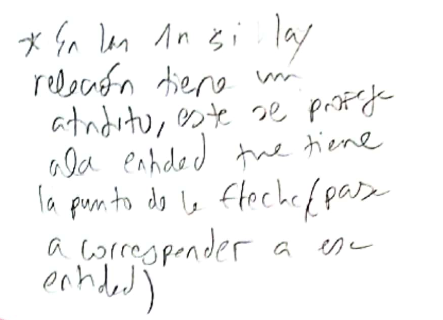 * En las 1n si la
relación tiene un
atributo, este se protege
a la entidad que tiene
la punta de la flecha (pasa
a corresponder a esa
entidad)